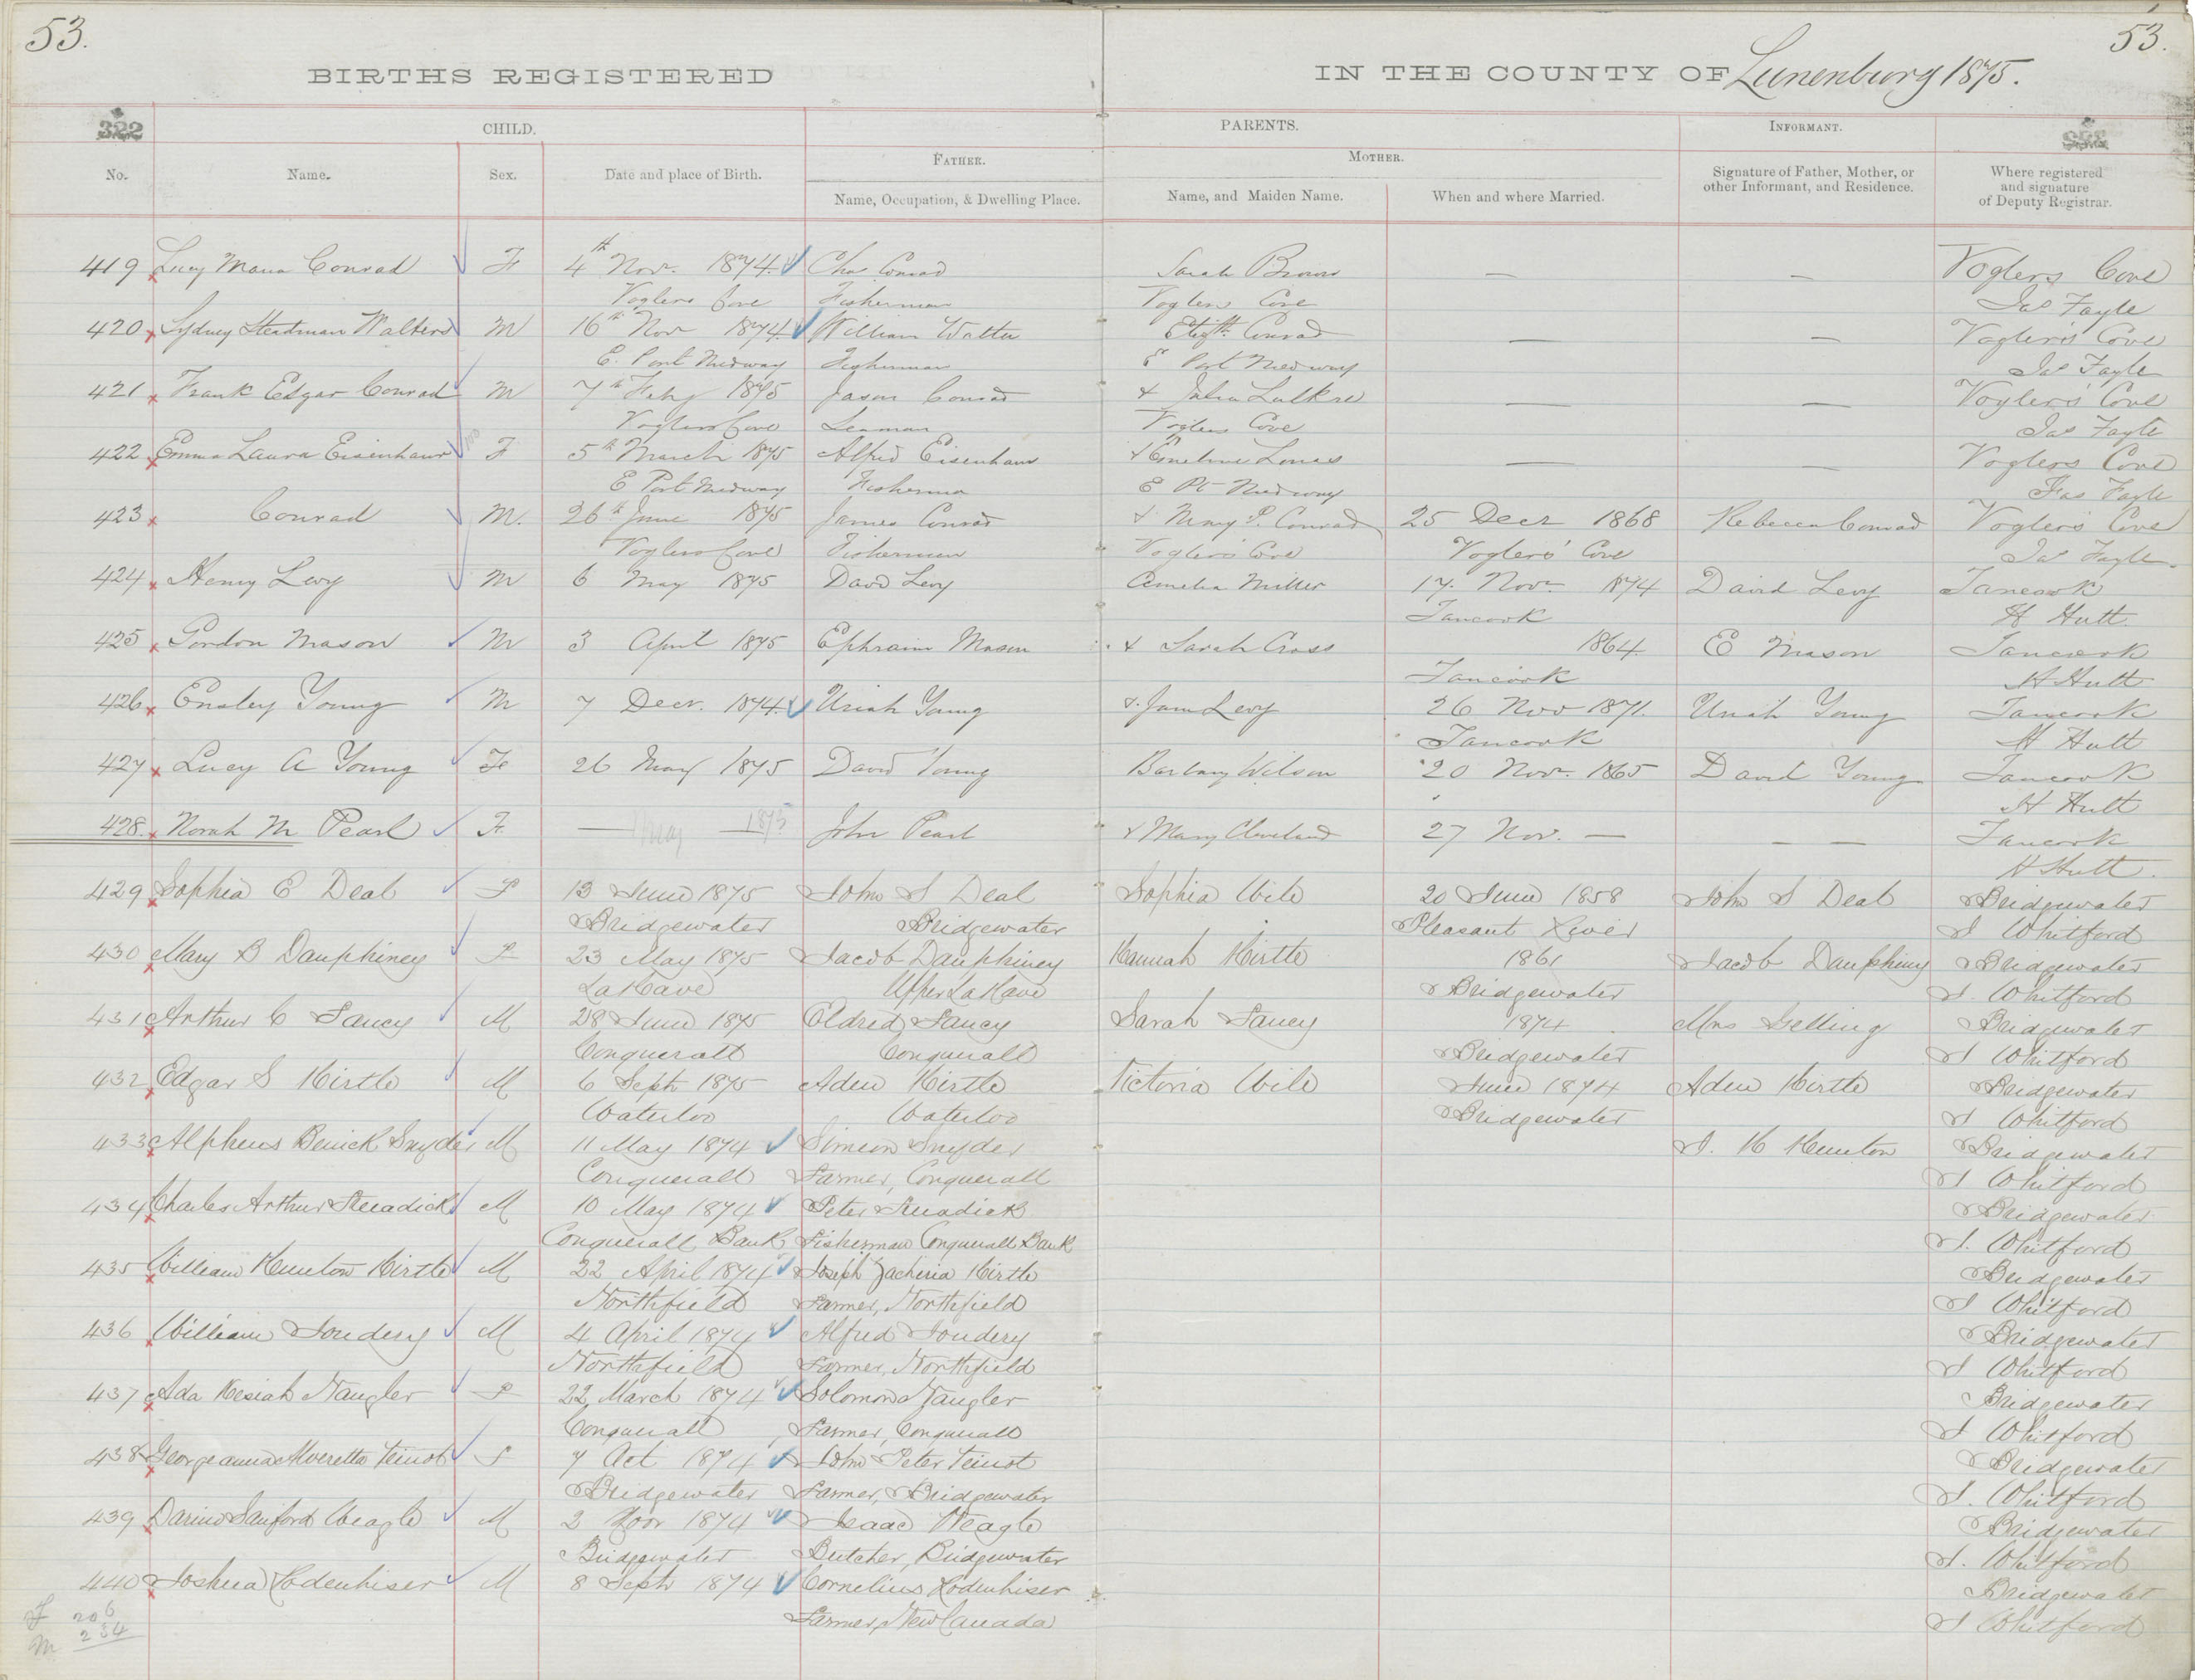 53.
53.
BIRTHS REGISTERED IN THE COUNTY OF Lunenburg 1875.
322
CHILD.
PARENTS.
INFORMANT.
No.
Name.
Sex.
Date and place of Birth.
FATHER.
Name, Occupation, & Dwelling Place.
MOTHER.
Name, and Maiden Name.
When and where Married.
Signature of Father, Mother, or
other Informant, and Residence.
Where registered
and signature
of Deputy Registrar.
419 Lucy Maria Conrad F 4th Nov. 1874. Chas Conrad Sarah Brown — — Voglers Cove
Voglers Cove Fisherman Voglers Cove Jas Fayle
420 Sydney Steadman Walters M 16th Nov 1874. William Walter Elizth Conrad — — Vogler's Cove
E. Port Medway Fisherman E Port Medway Jas Fayle
421 Frank Edgar Conrad M 7th Feby 1875 Jason Conrad & Julia — — Vogler's Cove
Voglers Cove Seaman Voglers Cove Jas Fayle
422 Emma Laura Eisenhaur F 5th March 1875 Alfred Eisenhaur & Emeline — — Voglers Cove
E Port Medway Fisherman E Pt Medway Jas Fayle
423 Conrad M. 26th June 1875 James Conrad & Mary P. Conrad 25 Decr 1868 Rebecca Conrad Voglers Cove
Voglers Cove Fisherman Vogler's Cove Voglers' Cove Jas Fayle.
424 Henry Levy M 6 May 1875 David Levy Amelia Miller 17. Nov. 1874 David Levy Tancook
Tancook H Hutt.
425 Gordon Mason M 3 April 1875 Ephraim Mason & Sarah Cross 1864. E Mason Tancook
Tancook H Hutt
426 Ensley Young M 7 Decr. 1874. Uriah Young & Jane Levy 26 Nov 1871. Uriah Young Tancook
Tancook H Hutt
427 Lucy A Young F 26 May 1875 David Young Barbary Wilson 20 Nov. 1865 David Young Tancook
H Hutt
428. Norah M Pearl F. — May — 1875 John Pearl & Mary Cleveland 27 Nov. — — — Tancook
H Hutt.
429 Sophia E Deal F 13 June 1875 John S Deal Sophia Wile 20 June 1858 John S Deal Bridgewater
Bridgewater Bridgewater Pleasant River J Whitford
430 Mary B Dauphiney F 23 May 1875 Jacob Dauphiney Hannah Hirtle 1861 Jacob Dauphiny Bridgewater
LaHave Upper LaHave Bridgewater J. Whitford
431 Arthur C Fancy M 28 June 1875 Eldred Fancy Sarah Fancy 1874 Mrs Gelling Bridgewater
Conquerall Conquerall Bridgewater J Whitford
432 Edgar S Hirtle M 6 Sept 1875 Aden Hirtle Victoria Wile June 1874 Aden Hirtle Bridgewater
Waterloo Waterloo Bridgewater J Whitford
433 Alpheus Snyder M 11 May 1874 Simeon Snyder J. H Bridgewater
Conquerall Farmer, Conquerall J Whitford
434 Charles Arthur M 10 May 1874 Peter Bridgewater
Conquerall Bank Fisherman Conquerall Bank J. Whitford
435 William Hirtle M 22 April 1874 Joseph Zacheria Hirtle Bridgewater
Northfield Farmer, Northfield J Whitford
436 William Joudery M 4 April 1874 Alfred Joudery Bridgewater
Northfield Farmer, Northfield J Whitford
437 Ada Kesiah Naugler F 22 March 1874 Solomon Naugler Bridgewater
Conquerall Farmer, Conquerall J Whitford
438 Georgeanna Alveretta Veinot F 7 Oct 1874 John Peter Veinot Bridgewater
Bridgewater Farmer, Bridgewater J. Whitford
439 Sanford Weagle M 2 Nov 1874 Isaac Weagle Bridgewater
Bridgewater Butcher, Bridgewater J. Whitford
440 Joshua Lodenhiser M 8 Sept 1874 Cornelius Lodenhiser Bridgewater
Farmer, New Canada J Whitford
F 206
M 234